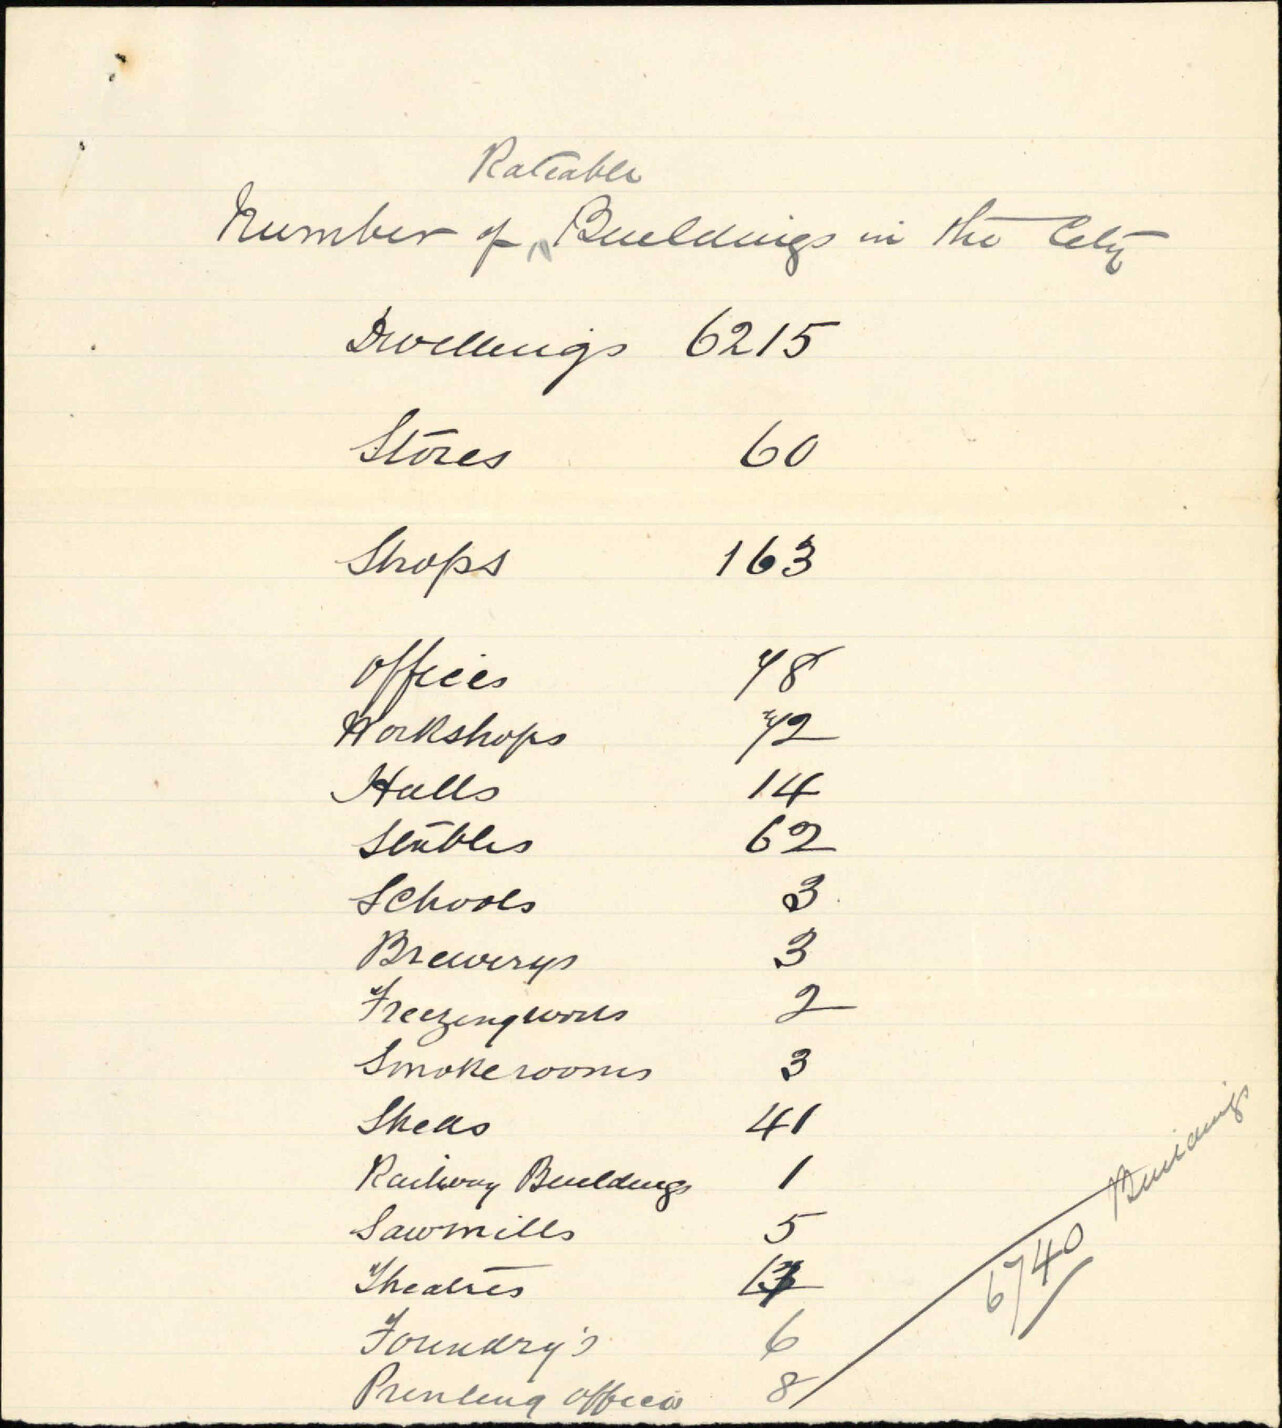 Rateable
Number of Buildings in the City
Dwellings 6215
Stores 60
Shops 163
Offices 78
Workshops 72
Halls 14
Stables 62
Schools 3
Brewerys 3
Freezingworks 2
Smokerooms 3
Sheds 41
Railway Buildings 1
Sawmills 5
Theatres 4
Foundry's 6
Printing offices 8
6740 Buildings